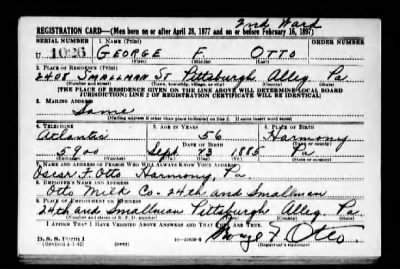 2nd Ward
REGISTRATION CARD—(Men born on or after April 28, 1877 and on or before February 16, 1897)
SERIAL NUMBER 1. NAME (Print) ORDER NUMBER
U 1026 GEORGE F. OTTO
(First) (Middle) (Last)
2. PLACE OF RESIDENCE (Print)
2408 SMALLMAN ST Pittsburgh Alleg Pa
(Number and street) (Town, township, village, or city) (County) (State)
[THE PLACE OF RESIDENCE GIVEN ON THE LINE ABOVE WILL DETERMINE LOCAL BOARD
JURISDICTION; LINE 2 OF REGISTRATION CERTIFICATE WILL BE IDENTICAL]
3. MAILING ADDRESS
Same
[Mailing address if other than place indicated on line 2. If same insert word same]
4. TELEPHONE 5. AGE IN YEARS 6. PLACE OF BIRTH
Atlantic 56 Harmony
DATE OF BIRTH (Town or county)
5900 Sept 23 1885 Pa
(Exchange) (Number) (Mo.) (Day) (Yr.) (State or country)
7. NAME AND ADDRESS OF PERSON WHO WILL ALWAYS KNOW YOUR ADDRESS
Oscar F. Otto Harmony, Pa.
8. EMPLOYER'S NAME AND ADDRESS
Otto Milk Co. 24th and Smallman
9. PLACE OF EMPLOYMENT OR BUSINESS
24th and Smallman Pittsburgh Alleg. Pa.
(Number and street or R. F. D. number) (Town) (County) (State)
I AFFIRM THAT I HAVE VERIFIED ABOVE ANSWERS AND THAT THEY ARE TRUE.
George F. Otto
D. S. S. Form 1
(Registrant's signature)